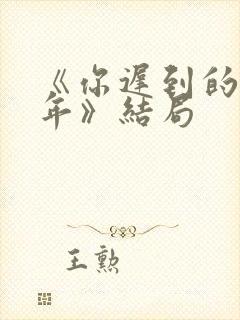 《你遲到的
年》結局
王勲